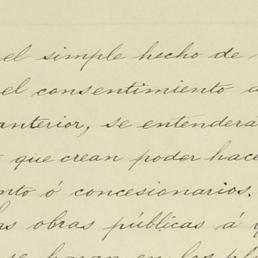 el simple hecho de
el consentimiento
anterior, se entendera
que crean poder hace
nto ó concesionarios.
as obras públicas á
se hagan en los pl